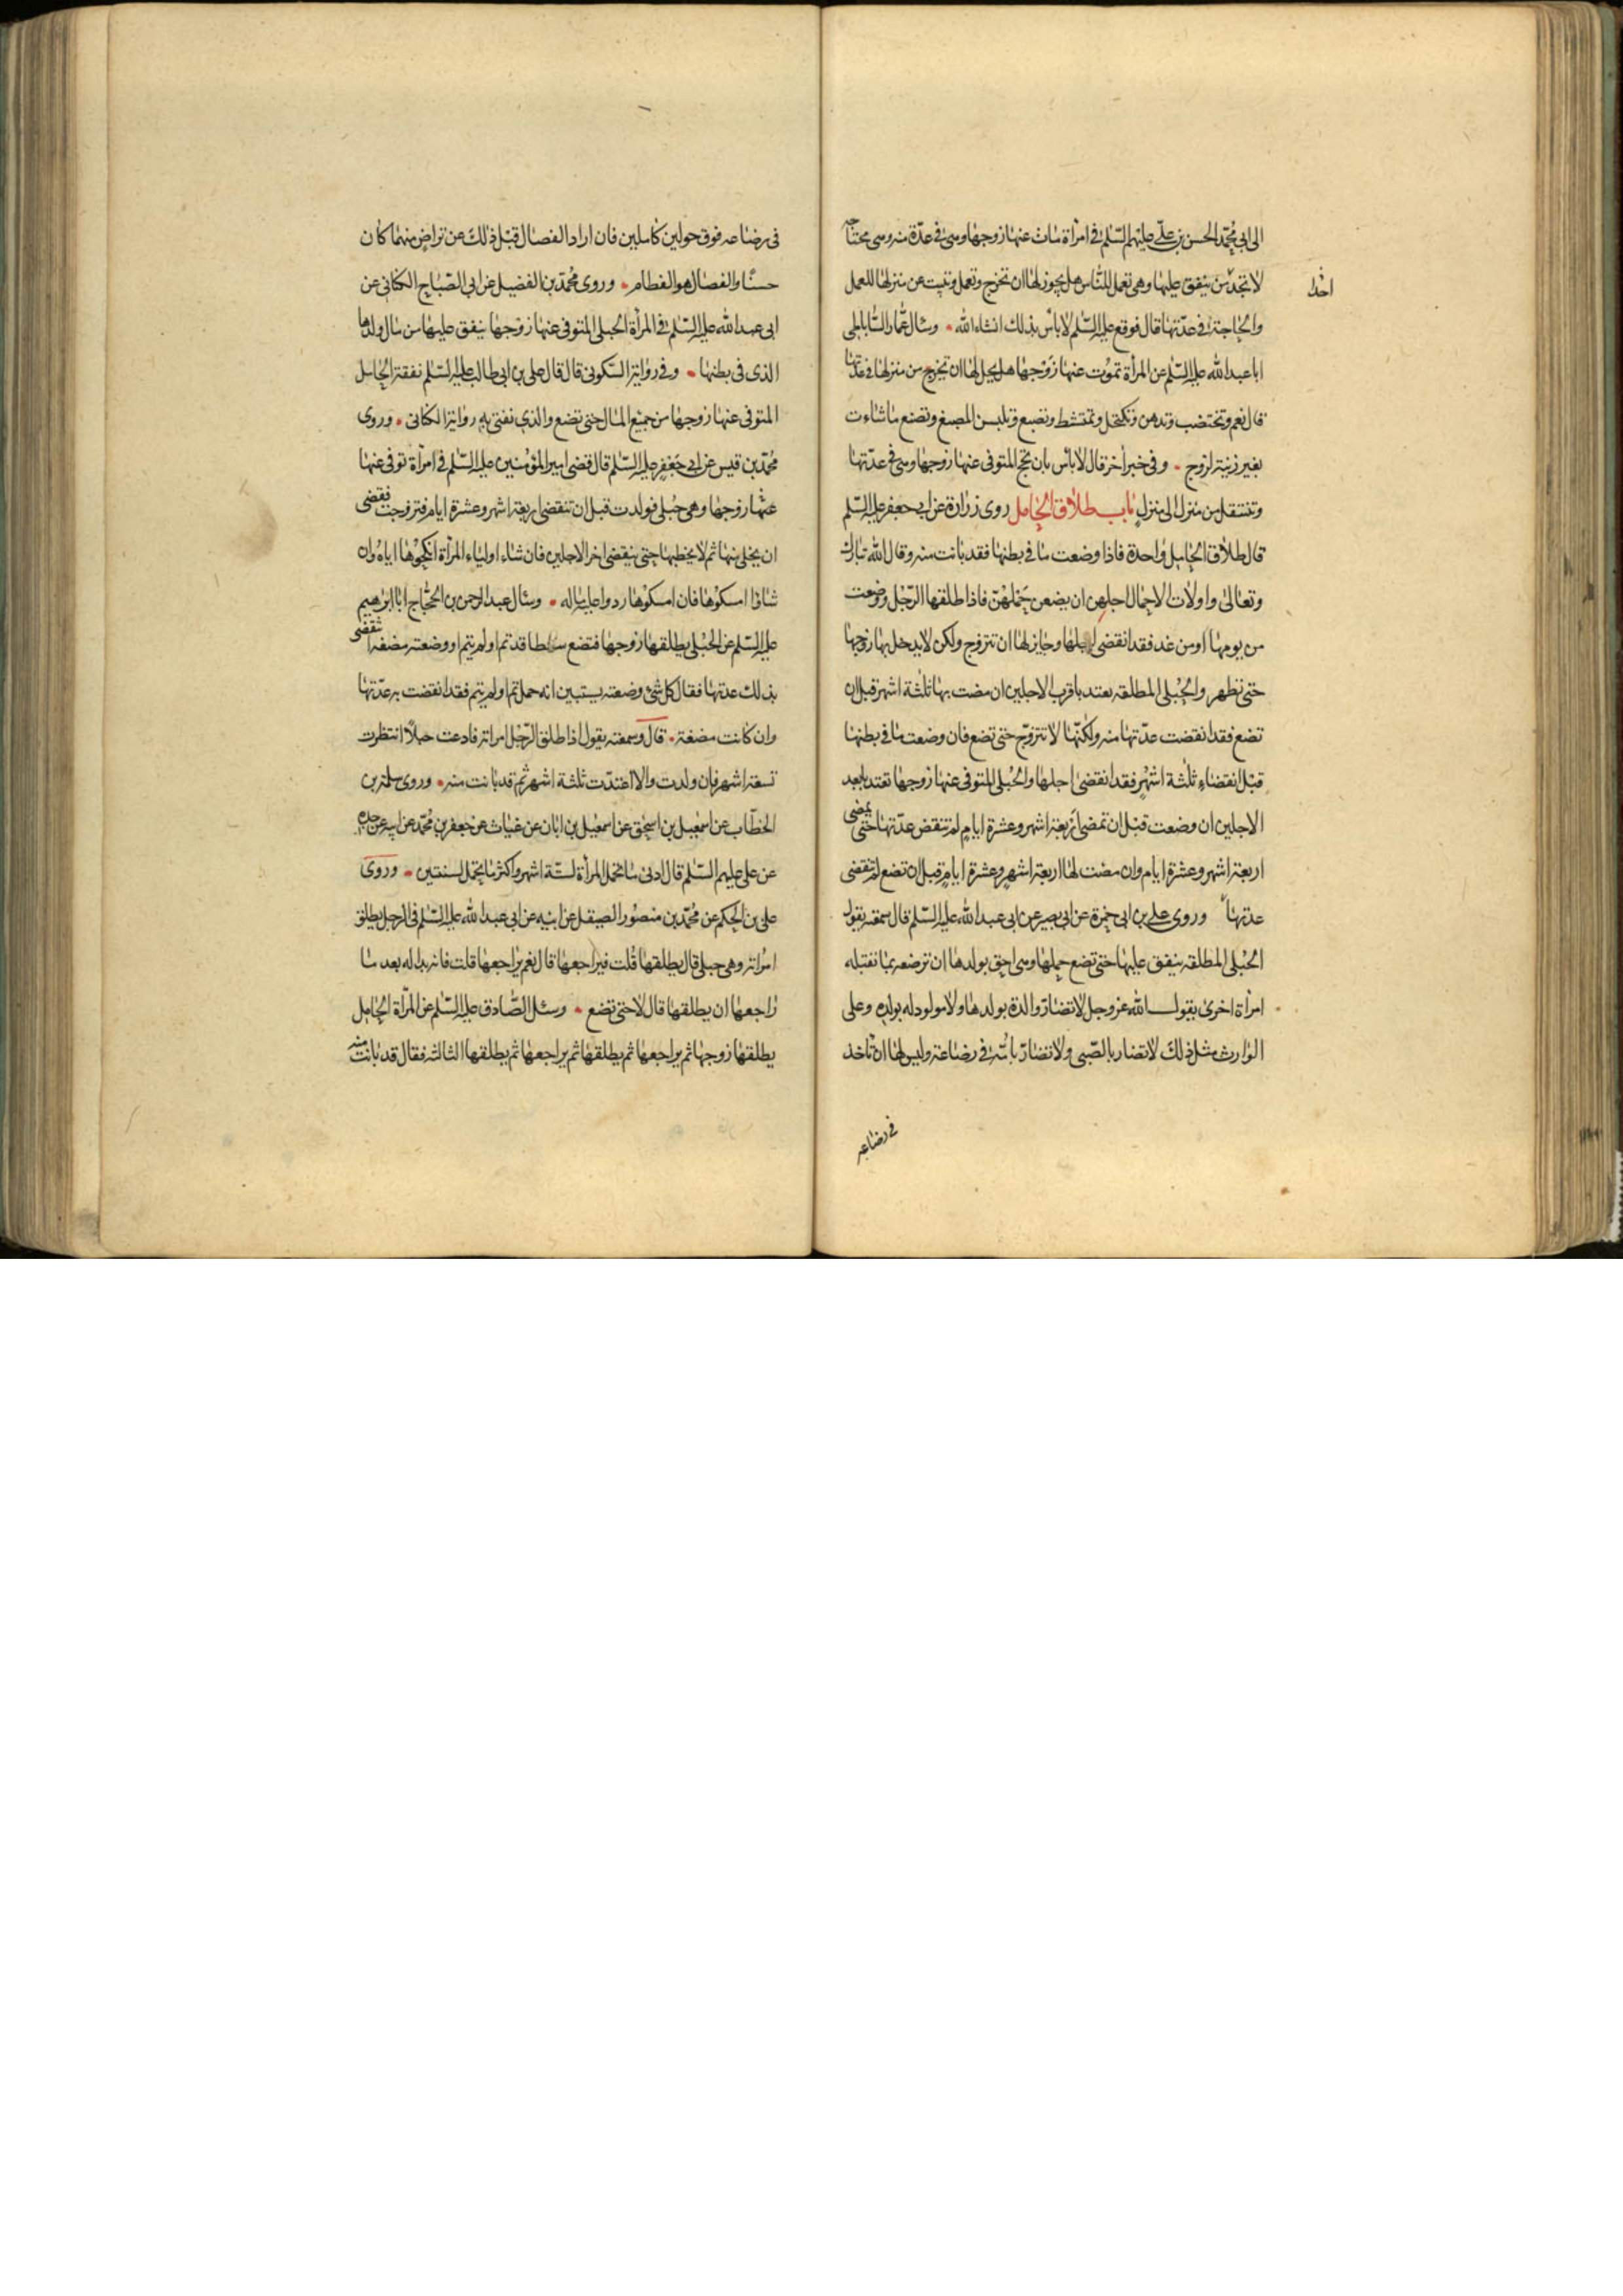 الى ابى محمد الحسن بن على عليهم السلم فى امرأة مات عنها زوجها وهى فى عدة منه وهى محتاجه
لا تجد من ينفق عليها وهى تعمل للناس هل يجوز لها ان تخرج وتعمل وتبيت عن منزلها للعمل
احدا
والحاجة فى عدتها قال فوقع عليه السلم لا باس بذلك انشاء الله وسال عمار الساباطى
ابا عبد الله عليه السلم عن المرأة تموت عنها زوجها هل يحل لها ان تخرج من منزلها فى عدتها
قال نعم وتختضب وتدهن وتكتحل وتمتشط وتصبغ وتلبس المصبغ وتصنع ما شاءت
بغير زينة لزوج وفى خبر اخر قال لا باس بان تحج المتوفى عنها زوجها وهى فى عدتها
وتنتقل من منزل الى منزل باب طلاق الحامل روى زرارة عن ابى جعفر عليه السلم
قال طلاق الحامل واحدة فاذا وضعت ما فى بطنها فقد بانت منه وقال الله تبارك
وتعالى واولات الاحمال اجلهن ان يضعن حملهن فاذا طلقها الرجل ووضعت
من يومها او من غد فقد انقضى اجلها وجايز لها ان تتزوج ولكن لا يدخل بها زوجها
حتى تطهر والحبلى المطلقه تعتد باقرب الاجلين ان مضت بها ثلثة اشهر قبل ان
تضع فقد انقضت عدتها منه ولكنها لا تتزوج حتى تضع فان وضعت ما فى بطنها
قبل انقضاء ثلثة اشهر فقد انقضى اجلها والحبلى المتوفى عنها زوجها تعتد بابعد
الاجلين ان وضعت قبل ان تمضى اربعة اشهر وعشرة ايام لم تنقض عدتها حتى تمضى
اربعة اشهر وعشرة ايام وان مضت لها اربعة اشهر وعشرة ايام قبل ان تضع لم تنقضى
عدتها وروى على بن ابى حمزة عن ابى بصير عن ابى عبد الله عليه السلم قال سمعته يقول
الحبلى المطلقه ينفق عليها حتى تضع حملها وهى احق بولدها ان ترضعه بما تقبله
امرأة اخرى يقول الله عز وجل لا تضار والدة بولدها ولا مولود له بولده وعلى
الوارث مثل ذلك لا تضار بالصبى ولا تضار بامه فى رضاعه وليس لها ان تاخذ
فى رضاعه
فى رضاعه فوق حولين كاملين فان ارادا الفصال قبل ذلك عن تراض منهما كان
حسنا والفصال هو الفطام وروى محمد بن الفضيل عن ابى الصباح الكنانى عن
ابى عبد الله عليه السلم فى المرأة الحبلى المتوفى عنها زوجها ينفق عليها من مال ولدها
الذى فى بطنها وفى رواية السكونى قال قال على بن ابى طالب عليه السلم نفقة الحامل
المتوفى عنها زوجها من جميع المال حتى تضع والذى نفتى به رواية الكنانى وروى
محمد بن قيس عن ابى جعفر عليه السلم قال قضى امير المؤمنين عليه السلم فى امرأة توفى عنها
عنها زوجها وهى حبلى فولدت قبل ان تنقضى اربعة اشهر وعشرة ايام فتزوجت فقضى
ان يخلى عنها ثم لا يخطبها حتى ينقضى اخر الاجلين فان شاء اولياء المرأة انكحوها اياه وان
شاؤا امسكوها فان امسكوها ردوا عليه ماله وسال عبد الرحمن بن الحجاج ابا ابرهيم
عليه السلم عن الحبلى يطلقها زوجها فتضع سقطا قد تم او لم يتم او وضعته مضغة اتنقضى
بذلك عدتها فقال كل شئ وضعته يستبين انه حمل تم او لم يتم فقد انقضت به عدتها
وان كانت مضغة قال وسمعته يقول اذا طلق الرجل امراته فادعت حبلا انتظرت
تسعة اشهر فان ولدت والا اعتدت ثلثة اشهر ثم قد بانت منه وروى سلمة بن
الخطاب عن اسمعيل بن اسحق عن اسمعيل بن ابان عن غياث عن جعفر بن محمد عن ابيه عن جده
عن على عليهم السلم قال ادنى ما تحمل المرأة لستة اشهر واكثر ما تحمل لسنتين وروى
على بن الحكم عن محمد بن منصور الصيقل عن ابيه عن ابى عبد الله عليه السلم فى الرجل يطلق
امراته وهى حبلى قال يطلقها قلت فيراجعها قال نعم يراجعها قلت فانه بدا له بعد ما
راجعها ان يطلقها قال لا حتى تضع وسئل الصادق عليه السلم عن المرأة الحامل
يطلقها زوجها ثم يراجعها ثم يطلقها ثم يراجعها ثم يطلقها الثالثه فقال قد بانت منه